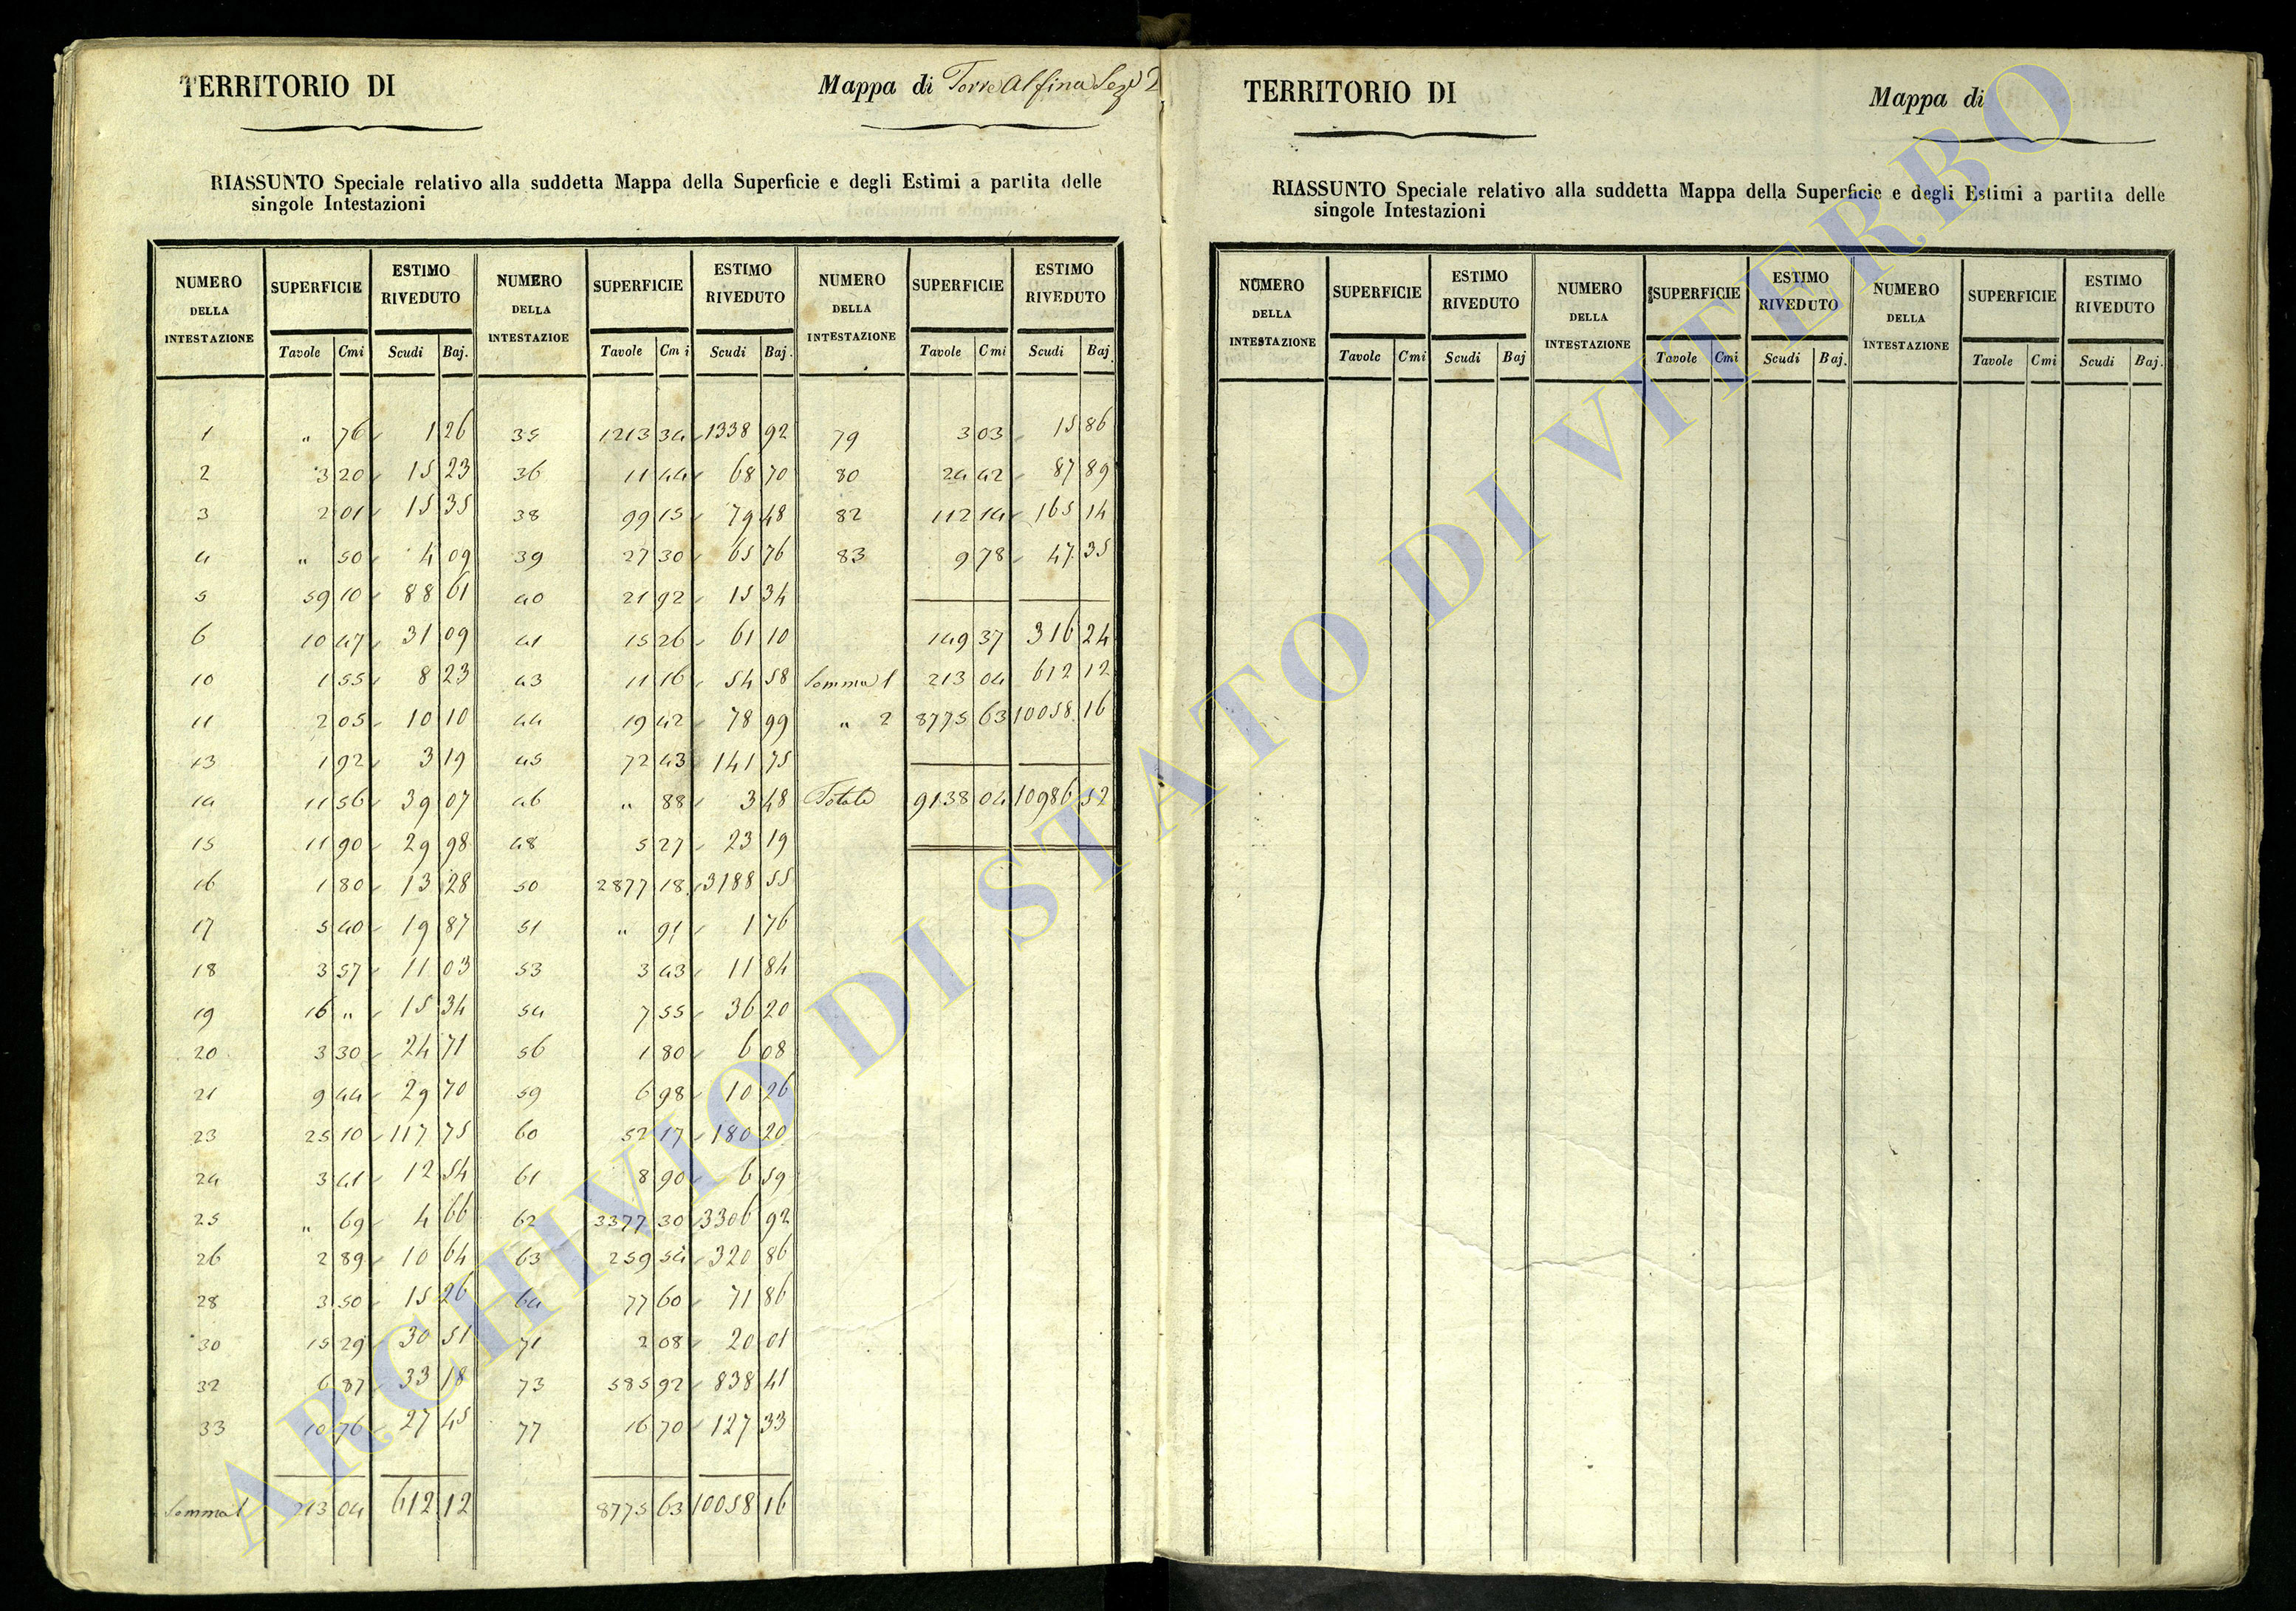 TERRITORIO DI
Mappa di Torre Alfina Sez 2
RIASSUNTO Speciale relativo alla suddetta Mappa della Superficie e degli Estimi a partita delle
singole Intestazioni
NUMERO DELLA INTESTAZIONE SUPERFICIE ESTIMO RIVEDUTO NUMERO DELLA INTESTAZIOE SUPERFICIE ESTIMO RIVEDUTO NUMERO DELLA INTESTAZIONE SUPERFICIE ESTIMO RIVEDUTO
Tavole Cmi Scudi Baj. Tavole Cmi Scudi Baj. Tavole Cmi Scudi Baj.
1 " 76 1 26 35 1213 34 1338 92 79 3 03 15 86
2 3 20 15 23 36 11 44 68 70 80 24 42 87 89
3 2 01 15 35 38 99 15 79 48 82 112 14 165 14
4 " 50 4 09 39 27 30 65 76 83 9 78 47 35
5 59 10 88 61 40 21 92 15 34
6 10 47 31 09 41 15 26 61 10 149 37 316 24
10 1 55 8 23 43 11 16 54 58 Somma 1 213 04 612 12
11 2 05 10 10 44 19 42 78 99 " 2 8775 63 10058 16
13 1 92 3 19 45 72 43 141 75
14 11 56 39 07 46 " 88 3 48 Totale 9138 04 10986 52
15 11 90 29 98 48 5 27 23 19
16 1 80 13 28 50 2877 18 3188 55
17 5 40 19 87 51 " 91 1 76
18 3 57 11 03 53 3 43 11 84
19 16 " 15 34 54 7 55 36 20
20 3 30 24 71 56 1 80 6 08
21 9 44 29 70 59 6 98 10 26
23 25 10 117 75 60 52 17 180 20
24 3 41 12 54 61 8 90 6 59
25 " 69 4 66 62 3377 30 3306 92
26 2 89 10 64 63 259 54 320 86
28 3 50 15 26 64 77 60 71 86
30 15 29 30 51 71 2 08 20 01
32 6 87 33 18 73 585 92 838 41
33 10 76 27 45 77 16 70 127 33
Somma 1 213 04 612 12 8775 63 10058 16
TERRITORIO DI
Mappa di
RIASSUNTO Speciale relativo alla suddetta Mappa della Superficie e degli Estimi a partita delle
singole Intestazioni
NUMERO DELLA INTESTAZIONE SUPERFICIE ESTIMO RIVEDUTO NUMERO DELLA INTESTAZIONE SUPERFICIE ESTIMO RIVEDUTO NUMERO DELLA INTESTAZIONE SUPERFICIE ESTIMO RIVEDUTO
Tavole Cmi Scudi Baj Tavole Cmi Scudi Baj. Tavole Cmi Scudi Baj.
ARCHIVIO DI STATO DI VITERBO